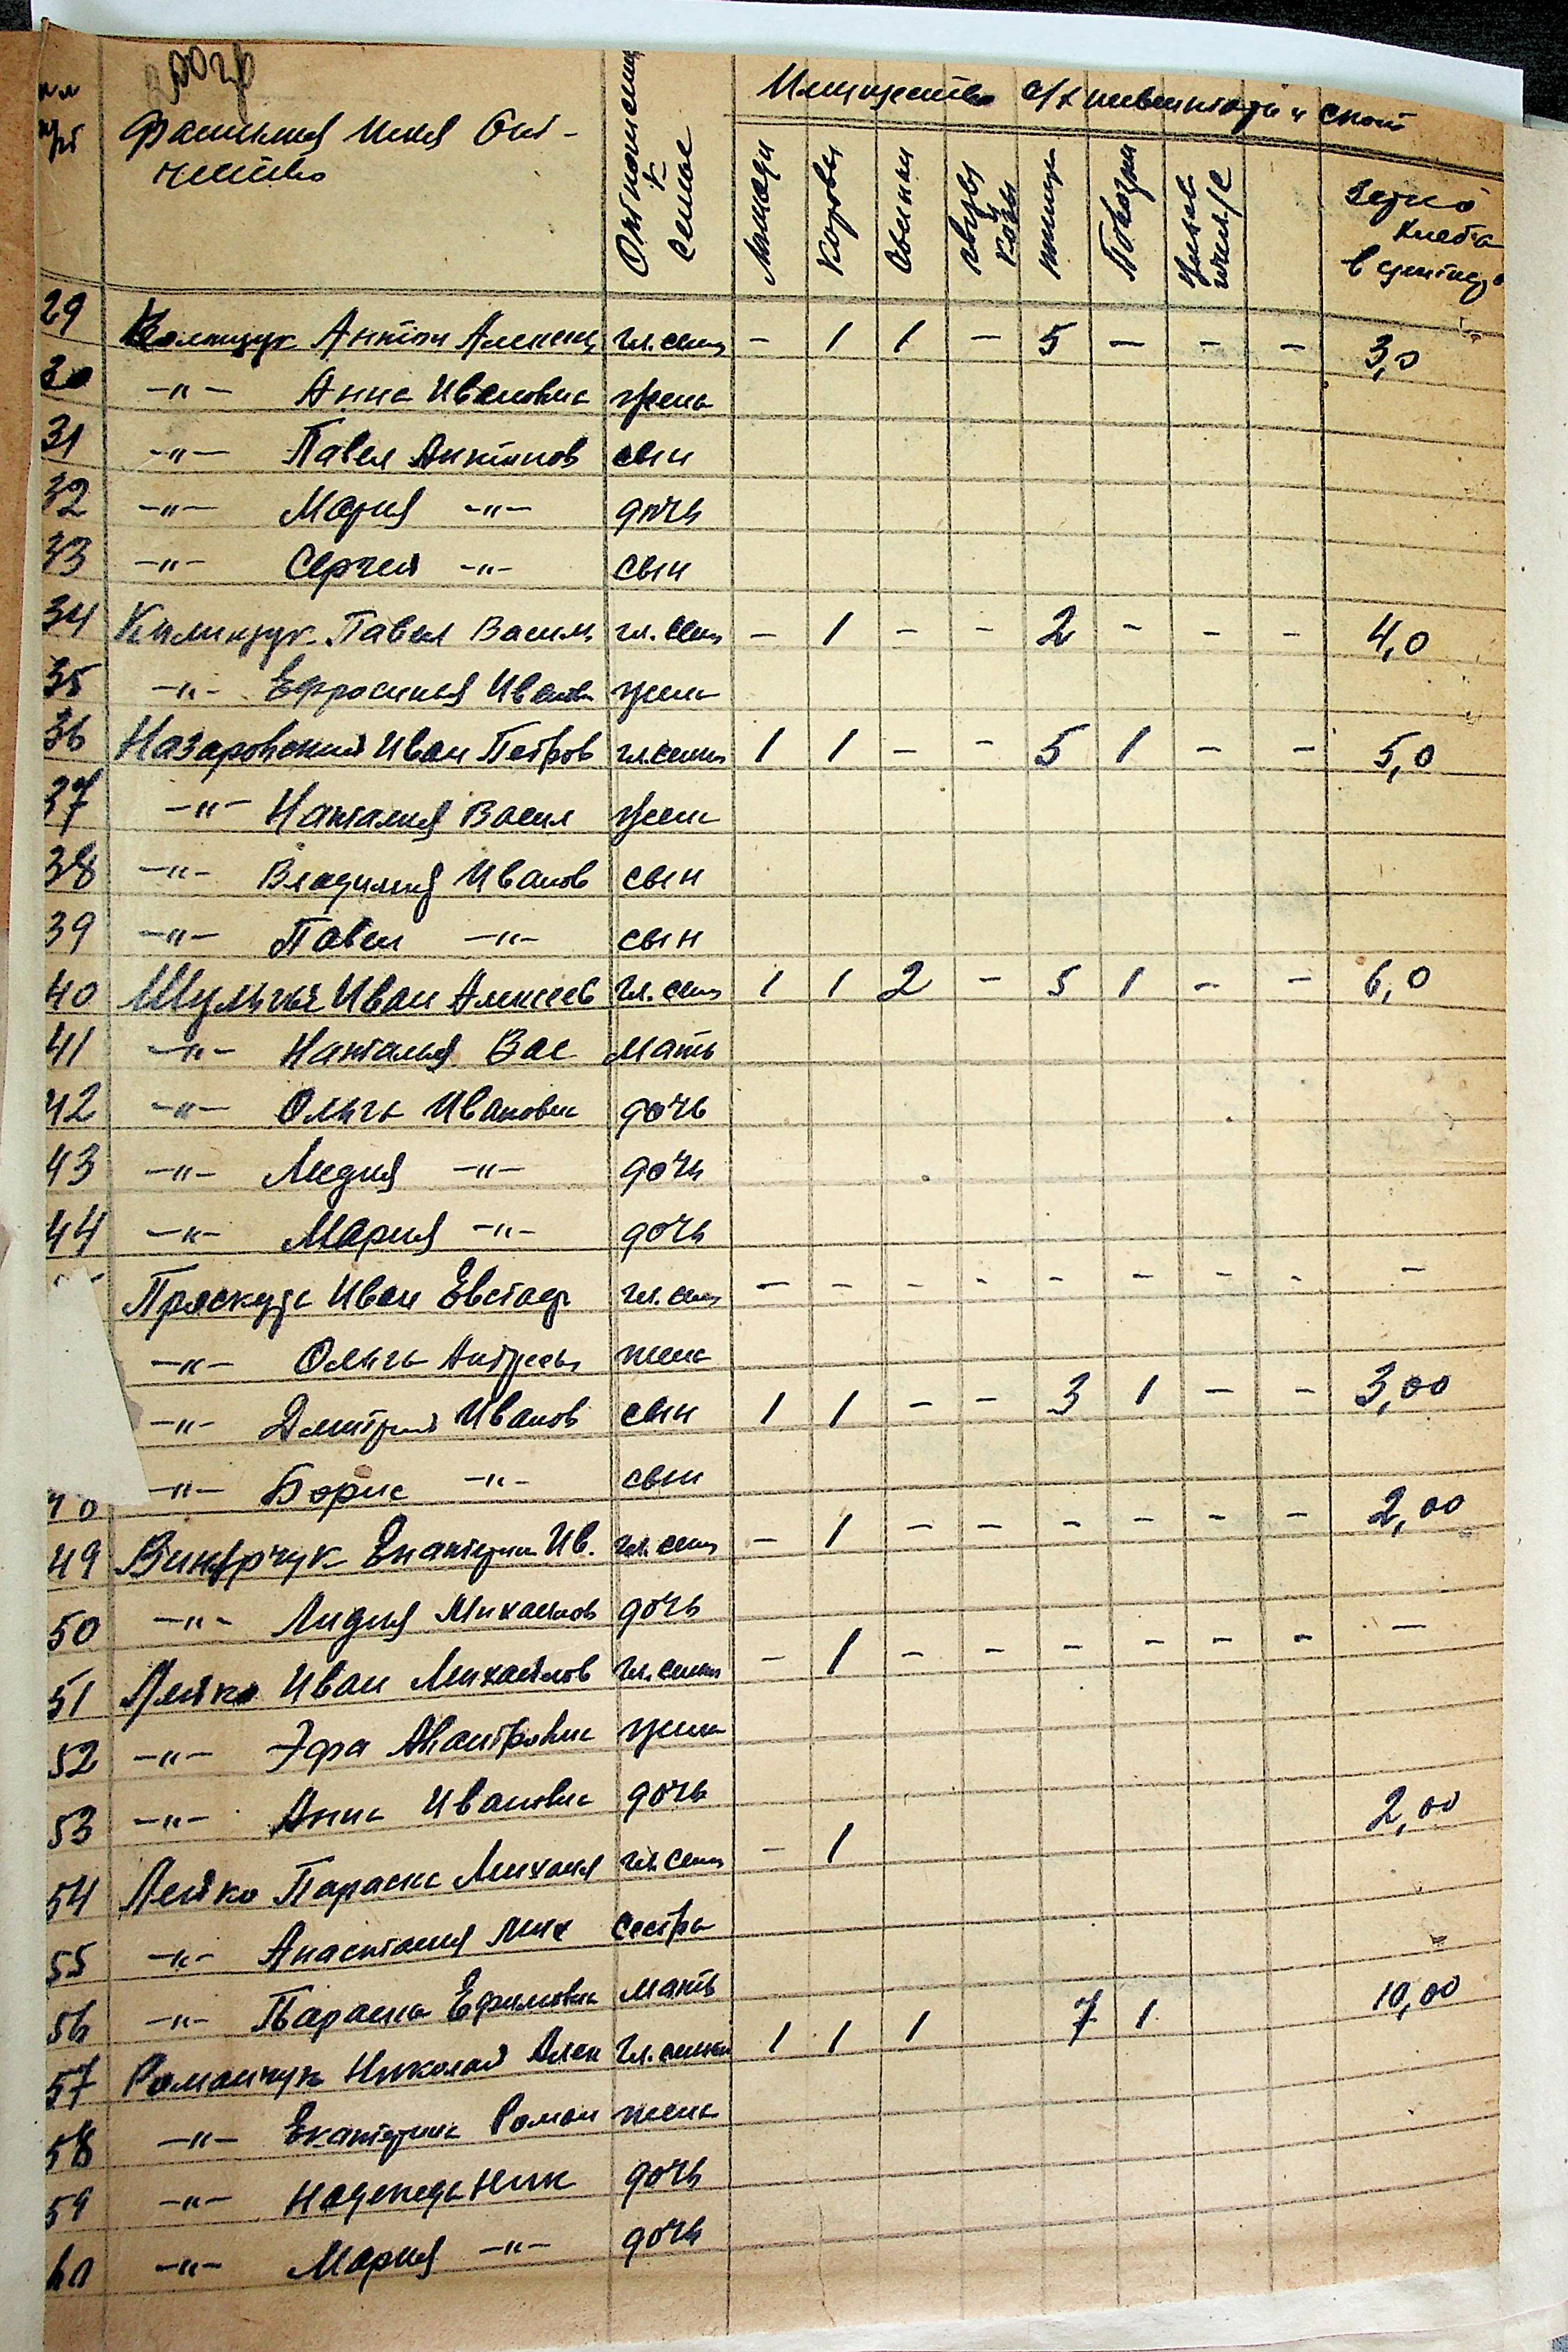 Фамилия Имя От-
чество
Отношение к семье
Имущество с/х инвентарь и скот
Лошади
Коровы
Свиньи
овцы и козы
птицы
Повозки
зерно хлеба в центнер
29 Антон Алексеев гл. семьи - 1 1 - 5 - - - 3,0
30 -"- Анна Ивановна жена
31 -"- Павел Антонов сын
32 -"- Мария -"- дочь
33 -"- Сергей -"- сын
34 Климчук Павел Васил гл. семьи - 1 - - 2 - - - 4,0
35 -"- Ефросинья Иванов жена
36 Назаровский Иван Петров гл. семьи 1 1 - - 5 1 - - 5,0
37 -"- Наталия Васил жена
38 -"- Владимир Иванов сын
39 -"- Павел -"- сын
40 Шульгия Иван Алексеев гл. семьи 1 1 2 - 5 1 - - 6,0
41 -"- Наталья Вас мать
42 -"- Ольга Ивановна дочь
43 -"- Лидия -"- дочь
44 -"- Мария -"- дочь
Проскура Иван Евстаф гл. семьи - - - - - - - - -
-"- Ольга Андреев жена
-"- Дмитрий Иванов сын 1 1 - - 3 1 - - 3,00
-"- Борис -"- сын
49 Винярчук Екатерин Ив. гл. семьи - 1 - - - - - - 2,00
50 -"- Лидия Михайлов дочь
51 Лейко Иван Михайлов гл. семьи - 1 - - - - - - -
52 -"- жена
53 -"- Анна Ивановна дочь
54 Лейко Параска Михаил гл. семьи - 1 2,00
55 -"- Анастасия Мих сестра
56 -"- Параска Ефимовна мать
57 Романчук Николай Алек гл. семьи 1 1 1 7 1 10,00
58 -"- Екатерина Роман жена
59 -"- Надежда Ник дочь
60 -"- Мария -"- дочь